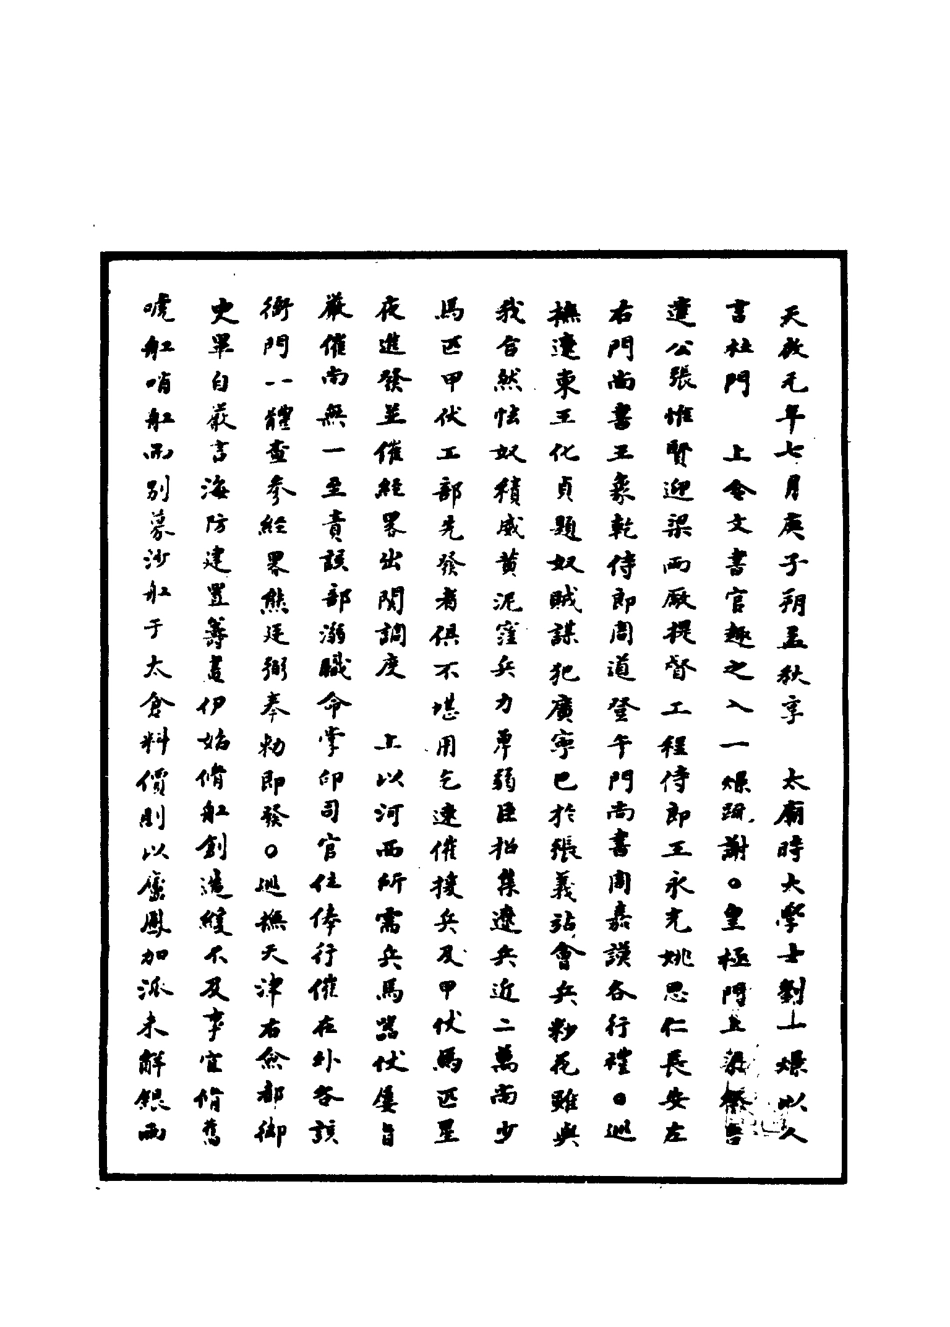 天啟元年七月庚子朔孟秋享　太廟時大學士劉一燝以人
言杜門　上令文書官趣之入一燝疏謝○皇極門上梁祭告
遣公張惟賢迎梁兩廠提督工程侍郎王永光姚思仁長安左
右門尚書王象乾侍郎周道登午門尚書周嘉謨各行禮○巡
撫遼東王化貞題奴賊謀犯廣寧已於張義站會兵粆花雖與
我合然怯奴積威黃泥窪兵力單弱臣招集遼兵近二萬尚少
馬匹甲仗工部先發者俱不堪用乞速催援兵及甲仗馬匹星
夜進發並催經畧出関調度　上以河西所需兵馬器仗屢旨
嚴催尚無一至責該部溺職命掌印司官住俸行催在外各該
衙門一體查參經畧熊廷弼奉勑即發○巡撫天津右僉都御
史畢自嚴言海防建置籌畫伊始脩舡創造緩不及事宜脩舊
唬舡哨舡而別募沙舡于太倉料價則以廬鳳加派未解銀兩